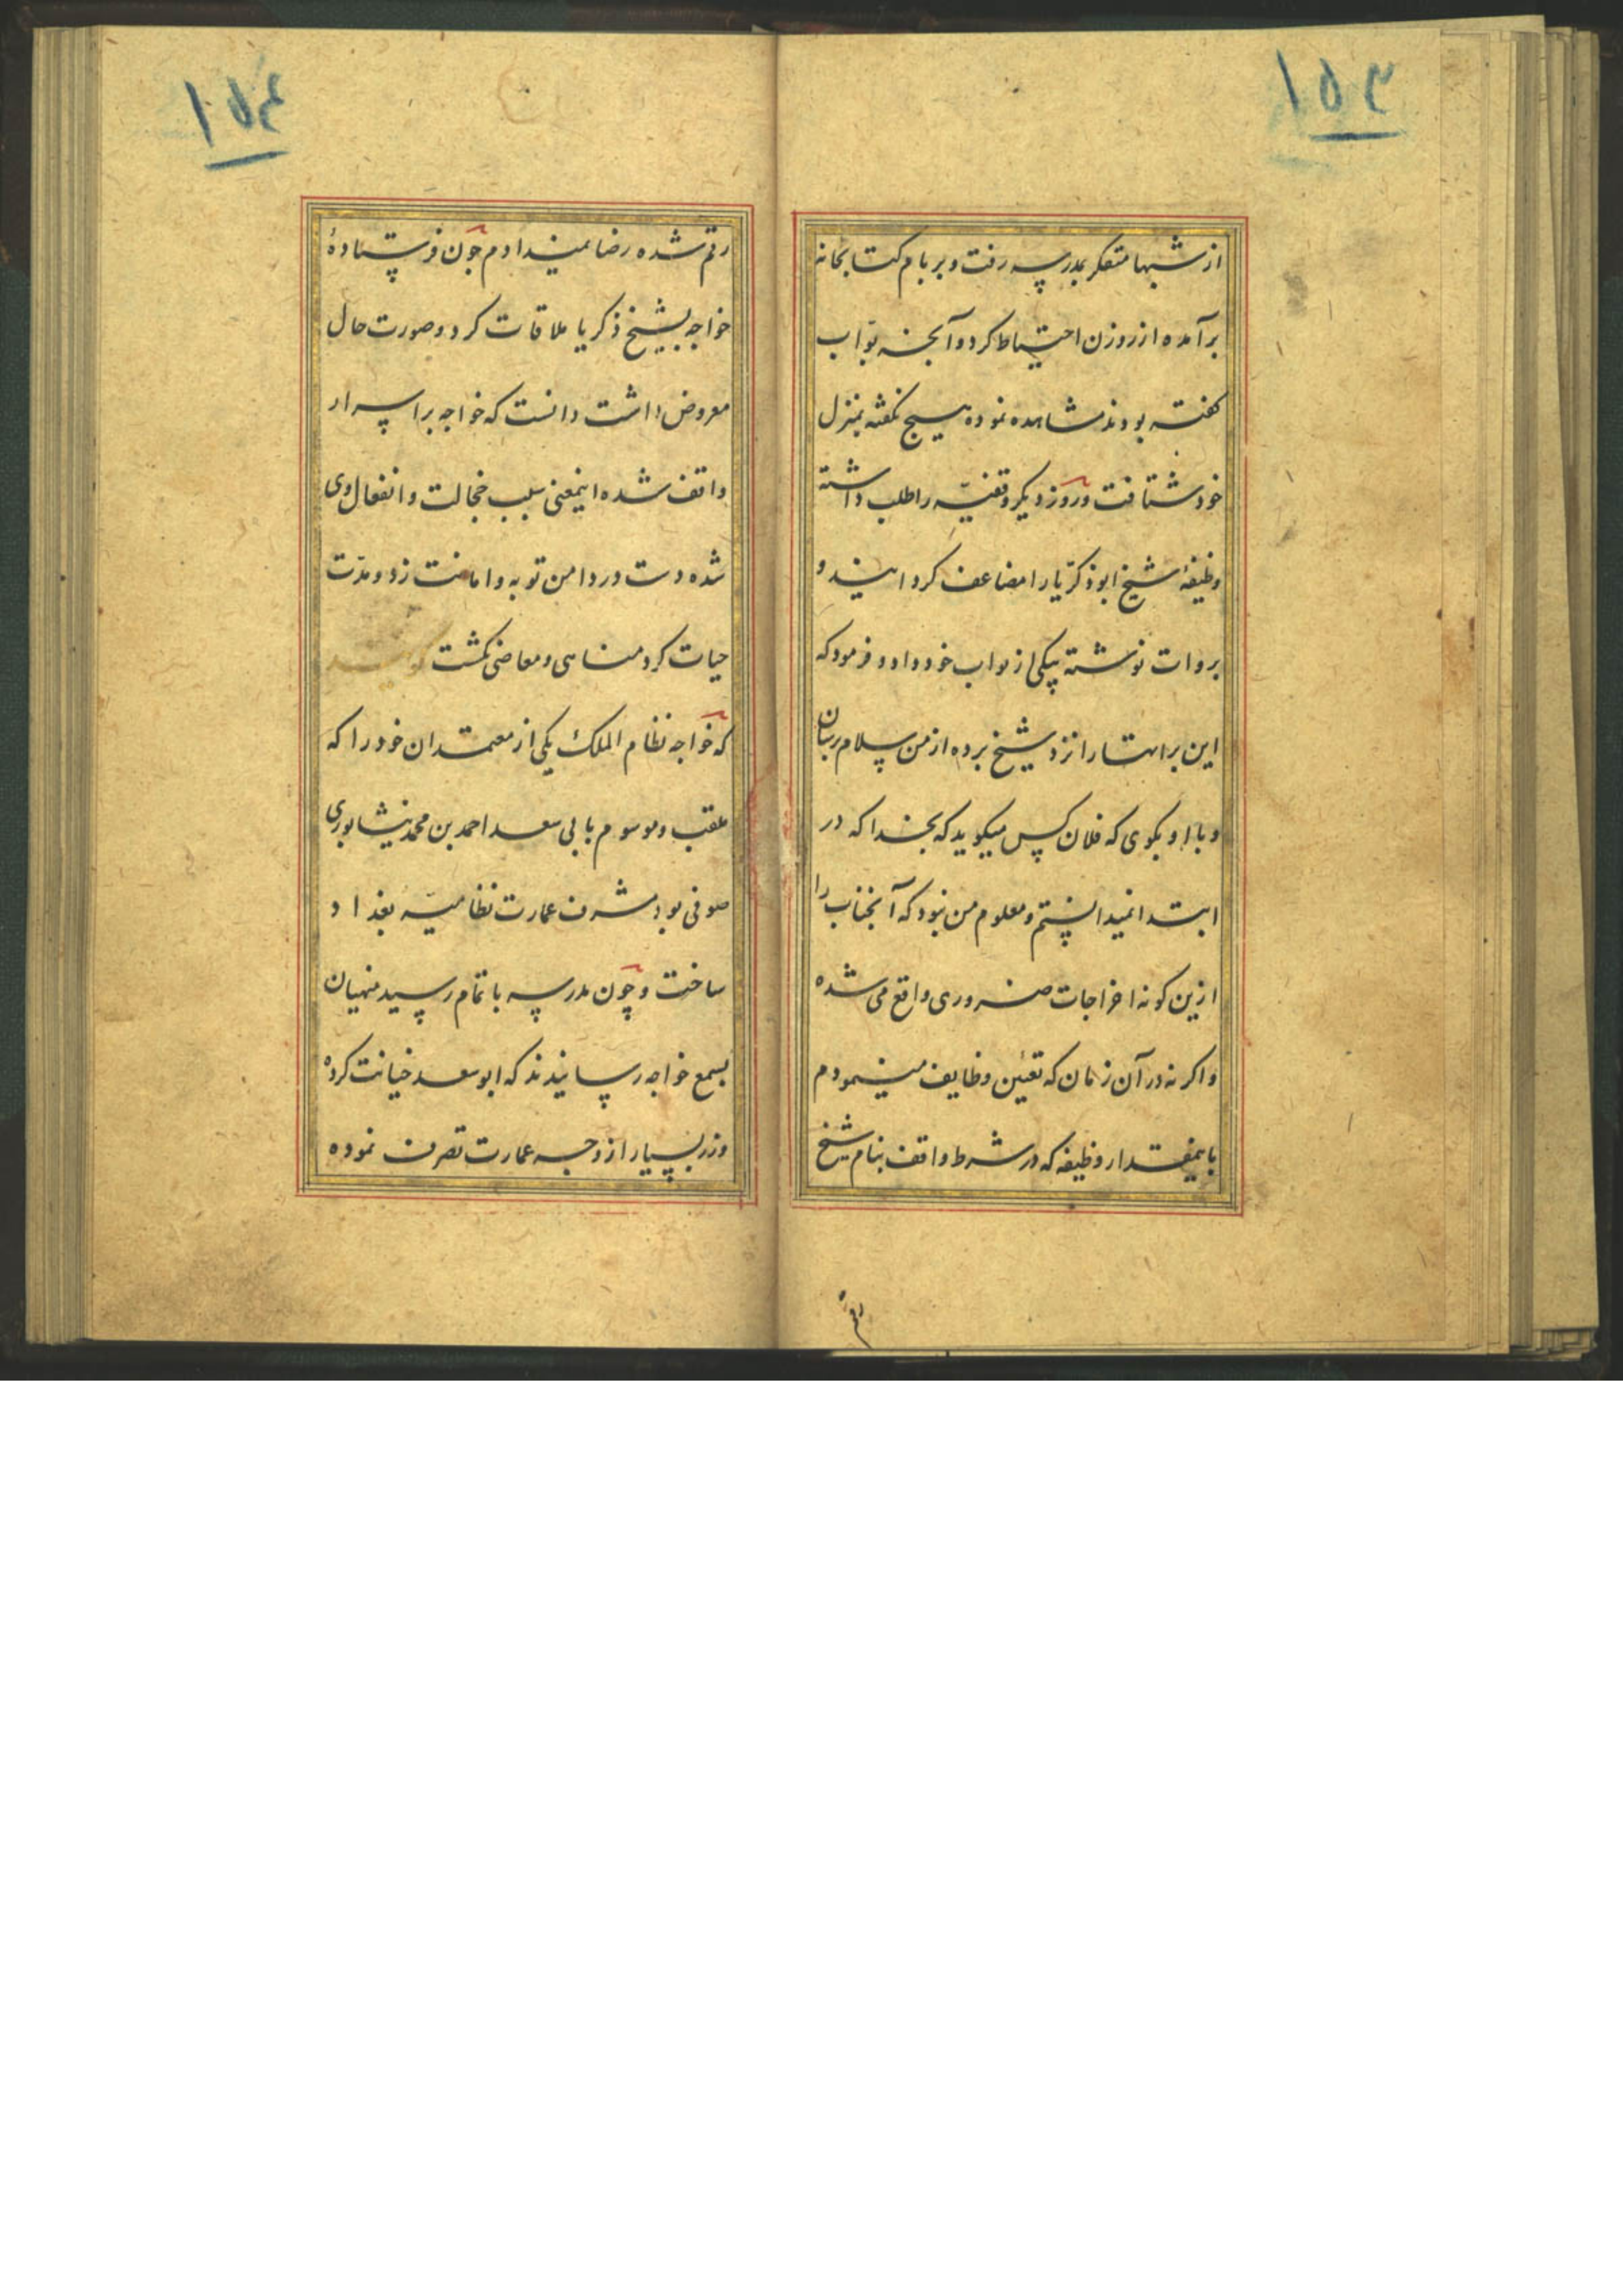 ۱۵۳
از شبها متفکر بمدرسه رفت و بر بام کتابخانه
برآمده از روزن احتیاط کرد و آنچه بوّاب
کفته بودند مشاهده نموده هیچ نکفته بمنزل
خود شتافت و روز دیکر وقفیّه را طلب داشته
وظیفهٔ شیخ ابوذکرّیا را مضاعف کردانید و
بروات نوشته بیکی از نواب خود داد و فرمود که
این براتها را نزد شیخ برده از من سلام برسان
و با او بکوی که فلان کس میکوید که بخدا که در
ابتدا نمیدانستم و معلوم من نبود که آنجناب را
ازین کونه اخراجات ضروری واقع می شده
و اکر نه در آن زمان که تعیّن وظایف مینمودم
باینمقدار وظیفه که در شرط واقف بنام شیخ
رقم
۱۵۴
رقم شده رضا نمیدادم چون فرستادهٔ
خواجه بشیخ ذکریا ملاقات کرد و صورت حال
معروض داشت دانست که خواجه بر اسرار
واقف شده اینمعنی سبب خجالت و انفعال وی
شده دست در دامن توبه و امانت زد و مدّت
حیات کرد مناهی و معاصی نکشت
که خواجه نظام الملک یکی از معتمدان خود را که
ملقب و موسوم بابی سعد احمد بن محمد نیشابوری
صوفی بود مشرف عمارت نظامیّه بغداد
ساخت و چون مدرسه باتمام رسید منهیان
بسمع خواجه رسانیدند که ابوسعد خیانت کرده
و زر بسیار از وجه عمارت تصرف نموده